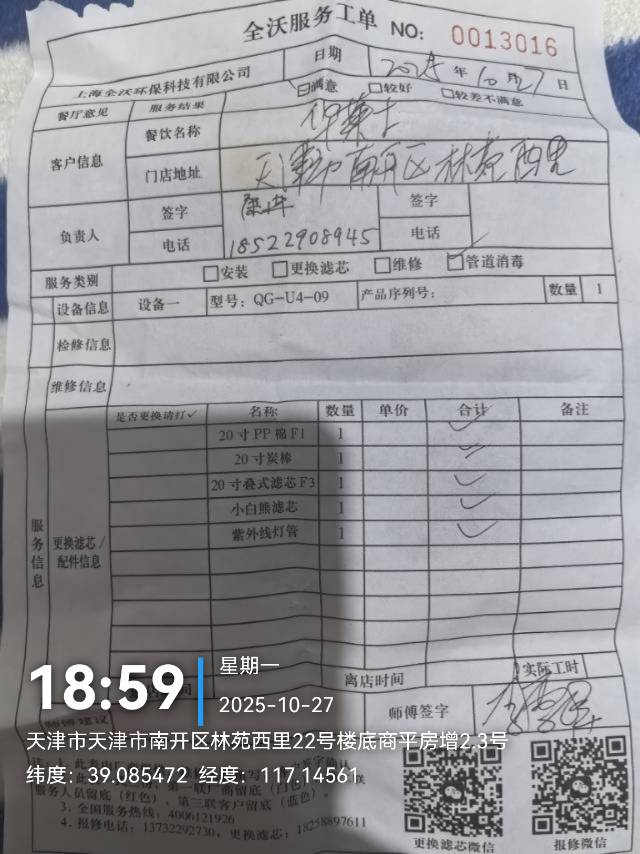 全沃服务工单 NO: 0013016
上海全沃环保科技有限公司 日期 2025年10月27日
餐厅意见 服务结果 ☑满意 □较好 □较差不满意
客户信息 餐饮名称 华莱士
门店地址 天津市南开区林苑西里
负责人 签字 签字
电话 18522908945 电话
服务类别 □安装 □更换滤芯 □维修 ☑管道消毒
设备信息 设备一 型号: QG-U4-09 产品序列号: 数量 1
检修信息
维修信息
服务信息 更换滤芯/配件信息
是否更换请打✓ 名称 数量 单价 合计 备注
20寸PP棉F1 1 ✓
20寸炭棒 1 ✓
20寸叠式滤芯F3 1 ✓
小白熊滤芯 1 ✓
紫外线灯管 1 ✓
离店时间 实际工时
师傅建议 师傅签字
18:59 星期一
2025-10-27
天津市天津市南开区林苑西里22号楼底商平房增2.3号
纬度: 39.085472 经度: 117.14561
服务人员留底(红色)、第三联客户留底(蓝色)。
3、全国服务热线: 4006121926
4、报修电话: 13732292730, 更换滤芯: 18258897611
更换滤芯微信 报修微信